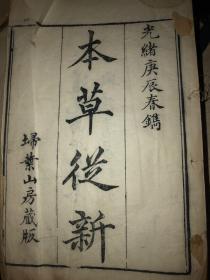 光緒庚辰春鐫
本草從新
埽葉山房藏版